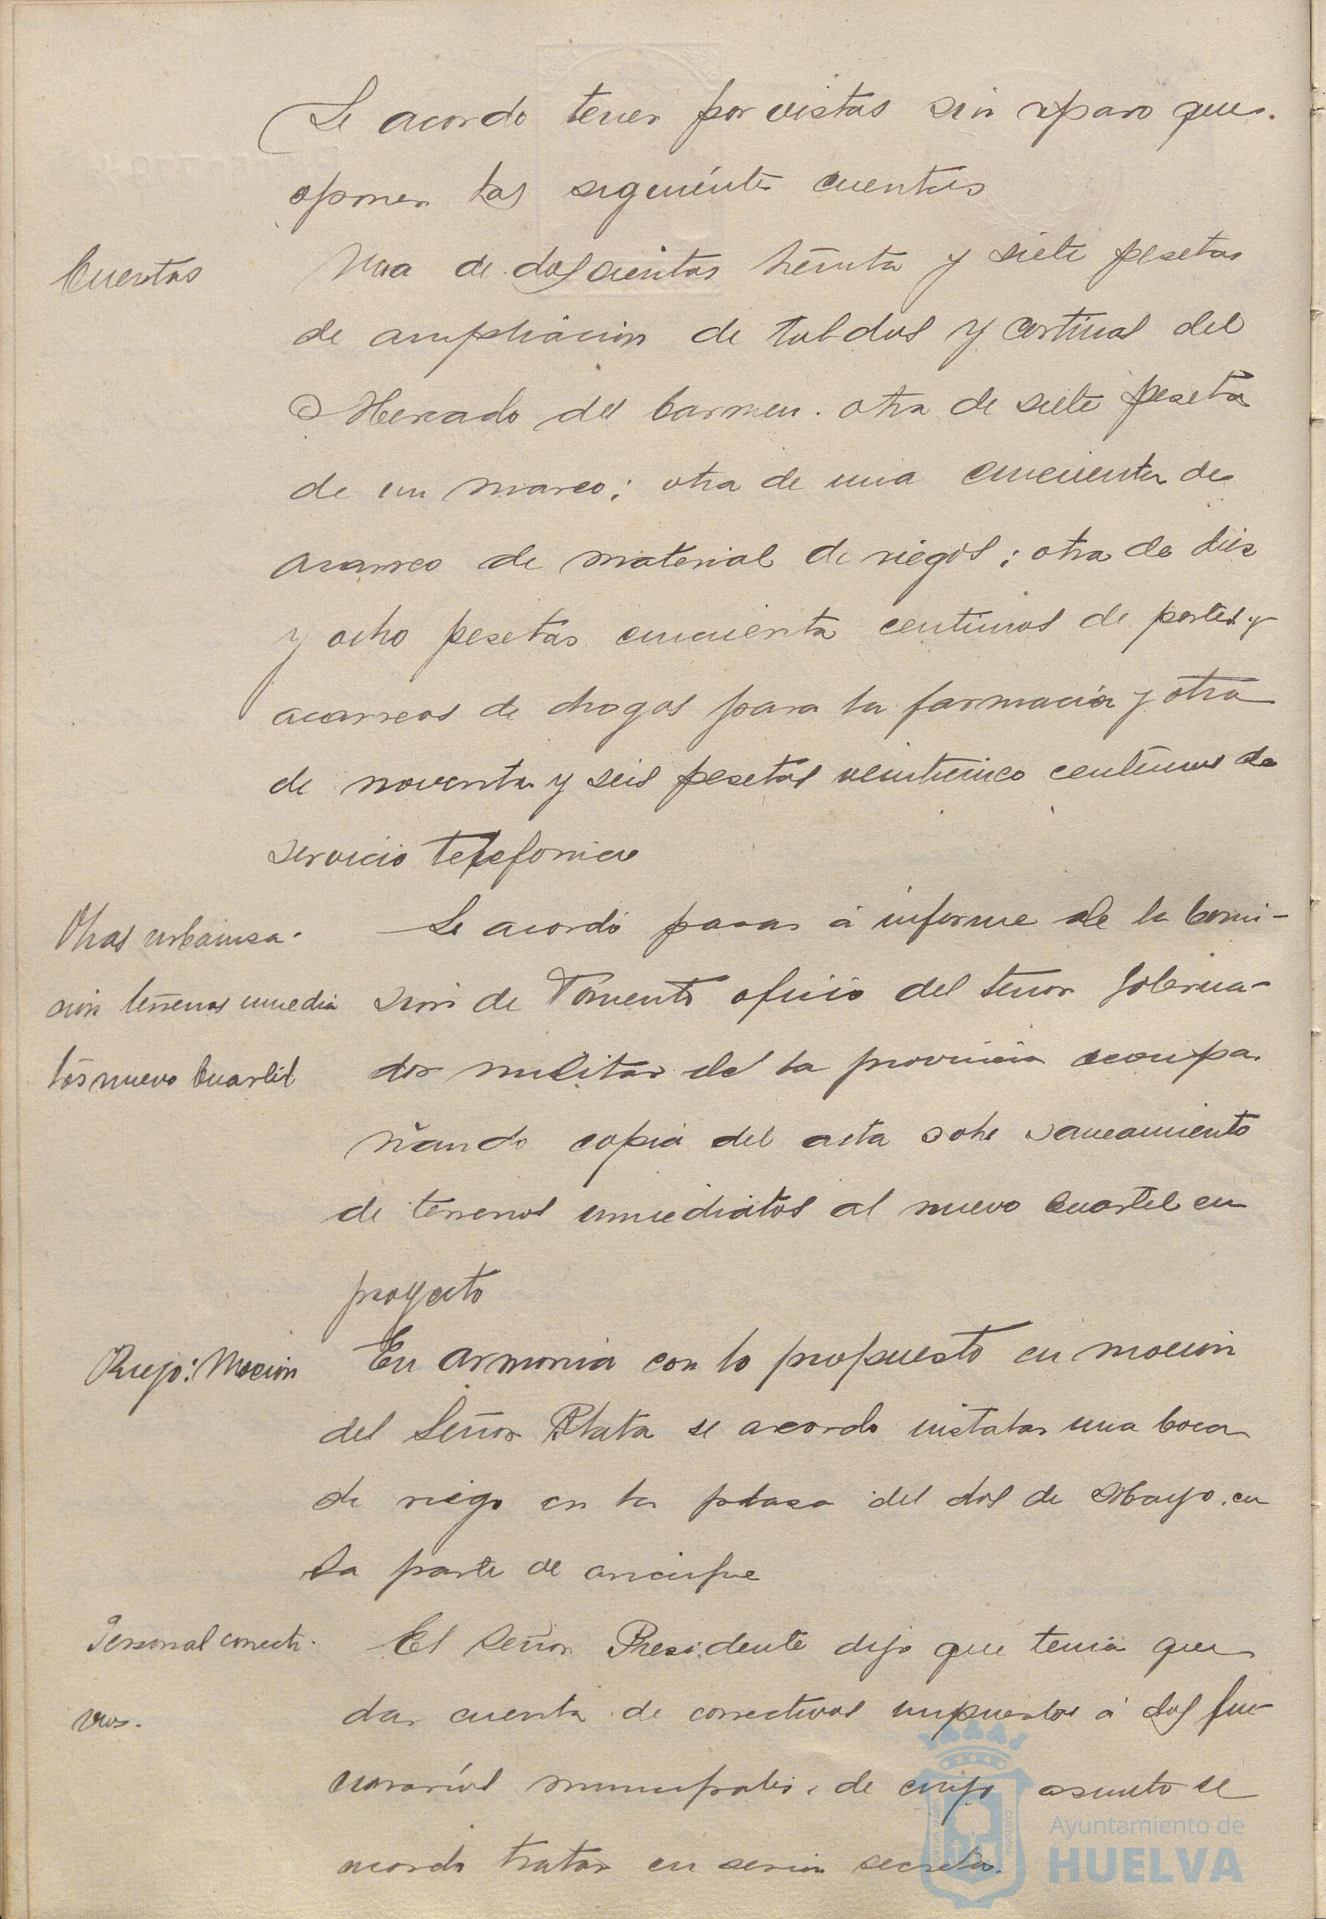 Se acordo tener por vistas sin reparo que
oponer las siguientes cuentas
Cuentas
Una de doscientas treinta y siete pesetas
de ampliacion de toldos y cortinas del
Mercado del Carmen. otra de siete peseta
de un marco; otra de una cincuenta de
acarreo de material de riegos; otra de diez
y ocho pesetas cincuenta centimos de portes y
acarreos de drogas para la farmacia y otra
de noventa y seis pesetas veinticinco centimos de
servicio telefonico
Obras urbaniza-
cion terrenos inmedia
tos nuevo Cuartel
Se acordó pasar á informe de la Comi-
sion de Fomento oficio del señor Goberna-
dor militar de la provincia acompa-
ñando copia del acta sobre saneamiento
de terrenos inmediatos al nuevo Cuartel en
proyecto
Riego: Mocion
En armonia con lo propuesto en mocion
del Señor Plata se acordo instalar una boca
de riego en la plaza del dos de Mayo, en
la parte de
Personal correcti-
vos.
El Señor Presidente dijo que tenia que
dar cuenta de correctivos impuestos á dos fun
cionarios municipales, de cuyo asunto se
acordo tratar en sesion secreta.
Ayuntamiento de
HUELVA